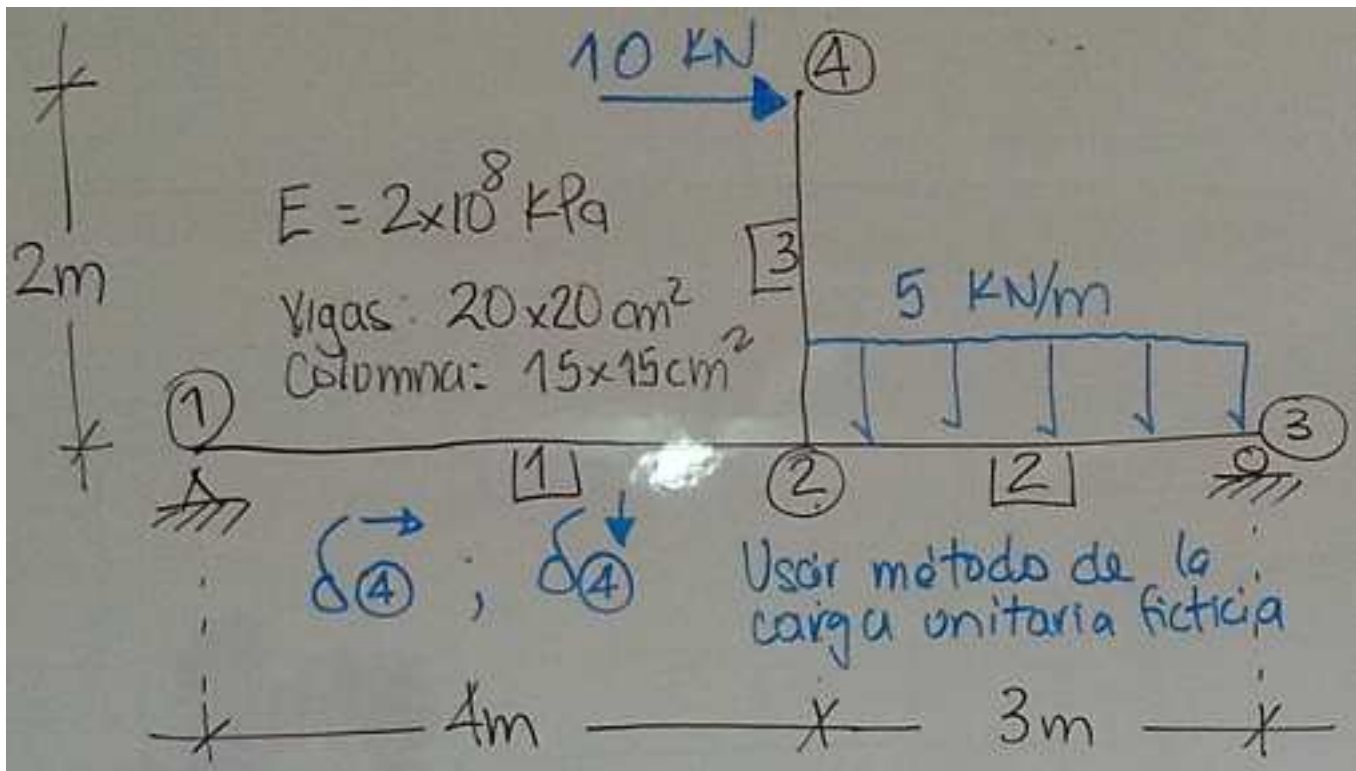 10 KN
④
E = 2x10⁸ KPa
2m
3
5 KN/m
Vigas: 20x20 cm²
Columna: 15x15cm²
①
③
1
②
2
δ④ ; δ④
Usar método de la
carga unitaria ficticia
4m
3m